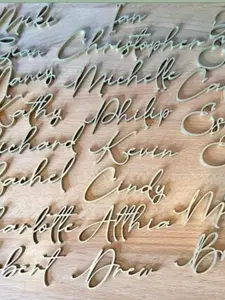 Mike Ian
Sean Christopher
Nancy Michelle Ca
Kathy Philip Es
Richard Kevin
Rachel Cindy
Charlotte Atthia M
bert Drew Br